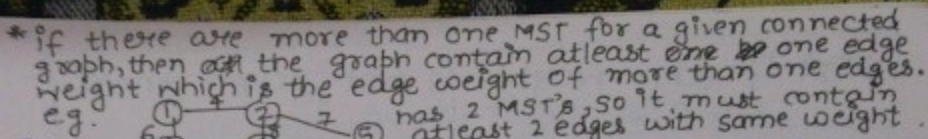 * if there are more than one MST for a given connected
graph, then the graph contain atleast one edge
weight which is the edge weight of more than one edges.
eg. 1 4 2 7 5 has 2 MST's, so it must contain
atleast 2 edges with same weight.